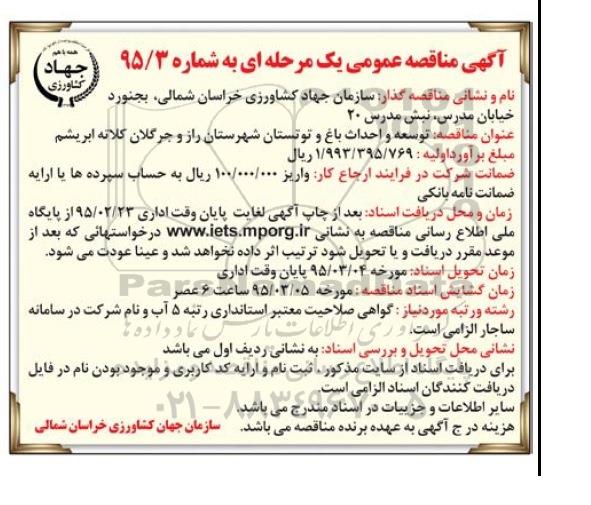 همه با هم
جهاد
کشاورزی
آگهی مناقصه عمومی یک مرحله ای به شماره ۹۵/۳
نام و نشانی مناقصه گذار: سازمان جهاد کشاورزی خراسان شمالی، بجنورد
خیابان مدرس، نبش مدرس ۲۰
عنوان مناقصه: توسعه و احداث باغ و توتستان شهرستان راز و جرگلان کلاته ابریشم
مبلغ برآورداولیه : ۱/۹۹۳/۳۹۵/۷۶۹ ریال
ضمانت شرکت در فرایند ارجاع کار: واریز ۱۰۰/۰۰۰/۰۰۰ ریال به حساب سپرده ها یا ارایه
ضمانت نامه بانکی
زمان و محل دریافت اسناد: بعد از چاپ آگهی لغایت پایان وقت اداری ۹۵/۰۲/۲۳ از پایگاه
ملی اطلاع رسانی مناقصه به نشانی www.iets.mporg.ir درخواستهائی که بعد از
موعد مقرر دریافت و یا تحویل شود ترتیب اثر داده نخواهد شد و عینا عودت می شود.
زمان تحویل اسناد: مورخه ۹۵/۰۳/۰۴ پایان وقت اداری
زمان گشایش اسناد مناقصه : مورخه ۹۵/۰۳/۰۵ ساعت ۶ عصر
رشته ورتبه موردنیاز : گواهی صلاحیت معتبر استانداری رتبه ۵ آب و نام شرکت در سامانه
ساجار الزامی است.
نشانی محل تحویل و بررسی اسناد: به نشانی ردیف اول می باشد
برای دریافت اسناد از سایت مذکور. ثبت نام و ارایه کد کاربری و موجود بودن نام در فایل
دریافت کنندگان اسناد الزامی است.
سایر اطلاعات و جزییات در اسناد مندرج می باشد.
هزینه در ج آگهی به عهده برنده مناقصه می باشد. سازمان جهان کشاورزی خراسان شمالی
۰۲۱-۸۸۳۴۹۶۷۰-۵